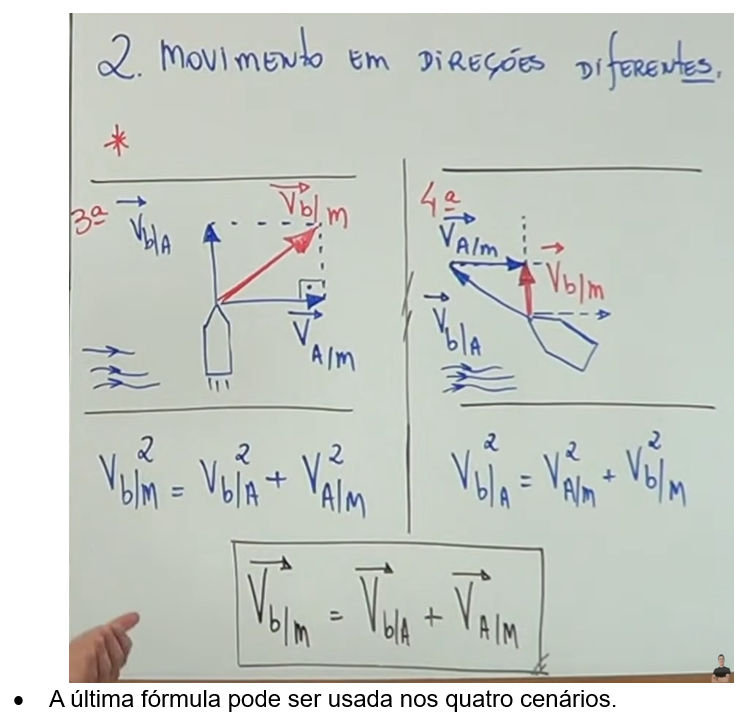 2. MOVIMENTO EM DIREÇÕES DIFERENTES.
*
3ª
V b/A
V b/m
V A/m
4ª
V A/m
V b/m
V b/A
V b/m ² = V b/A ² + V A/M ²
V b/A ² = V A/m ² + V b/M ²
V b/m = V b/A + V A/M
• A última fórmula pode ser usada nos quatro cenários.